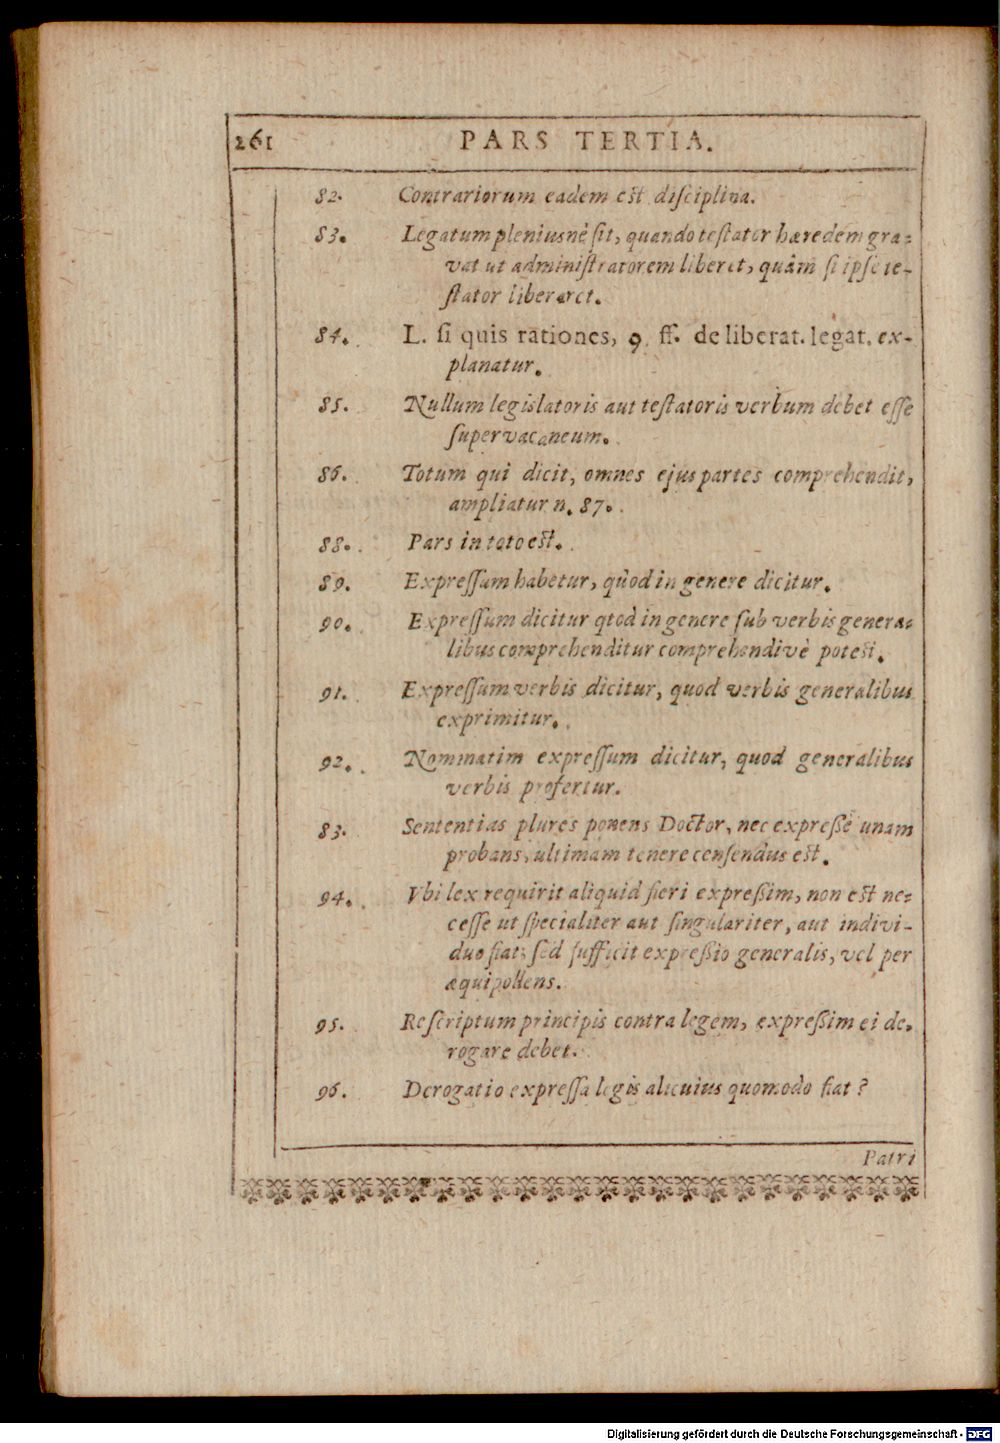 261 PARS TERTIA.
82. Contrariorum eadem est disciplina.
83. Legatum pleniusnè sit, quando testator hæredem gra=
vat ut administratorem liberet, quâm si ipse te-
stator liberaret.
84. L. si quis rationes, 9. ff. de liberat. legat. ex-
planatur.
85. Nullum legislatoris aut testatoris verbum debet esse
supervacaneum.
86. Totum qui dicit, omnes ejus partes comprehendit,
ampliatur n. 87.
88. Pars in toto est.
89. Expressum habetur, quod in genere dicitur.
90. Expressum dicitur qtod in genere sub verbis genera=
libus comprehenditur comprehendivè potest.
91. Expressum verbis dicitur, quod verbis generalibus
exprimitur.
92. Nominatim expressum dicitur, quod generalibus
verbis profertur.
83. Sententias plures ponens Doctor, nec expressè unam
probans, ultimam tenere censendus est.
94. Vbi lex requirit aliquid fieri expressim, non est ne=
cesse ut specialiter aut singulariter, aut indivi-
duo fiat; sed sufficit expressio generalis, vel per
æquipollens.
95. Rescriptum principis contra legem, expressim ei de.
rogare debet.
96. Derogatio expressa legis alicuius quomodo fiat?
Patri
Digitalisierung gefördert durch die Deutsche Forschungsgemeinschaft - DFG